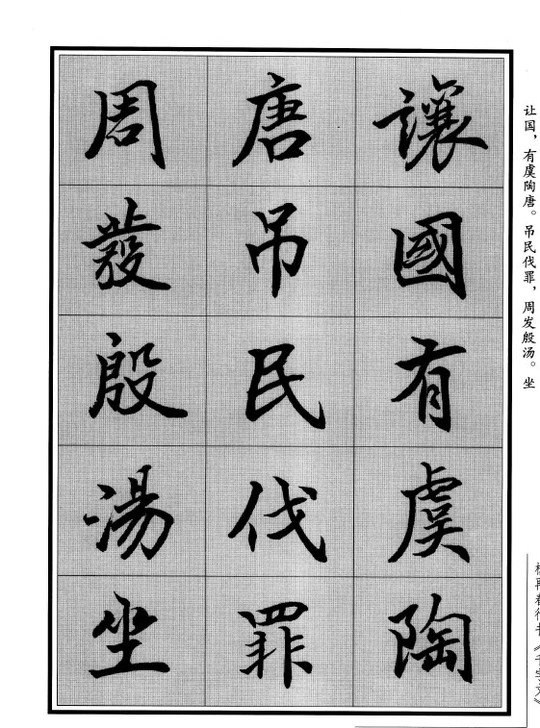 讓國有虞陶
唐吊民伐罪
周發殷湯坐
让国，有虞陶唐。吊民伐罪，周发殷汤。坐
再春行书《千字文》